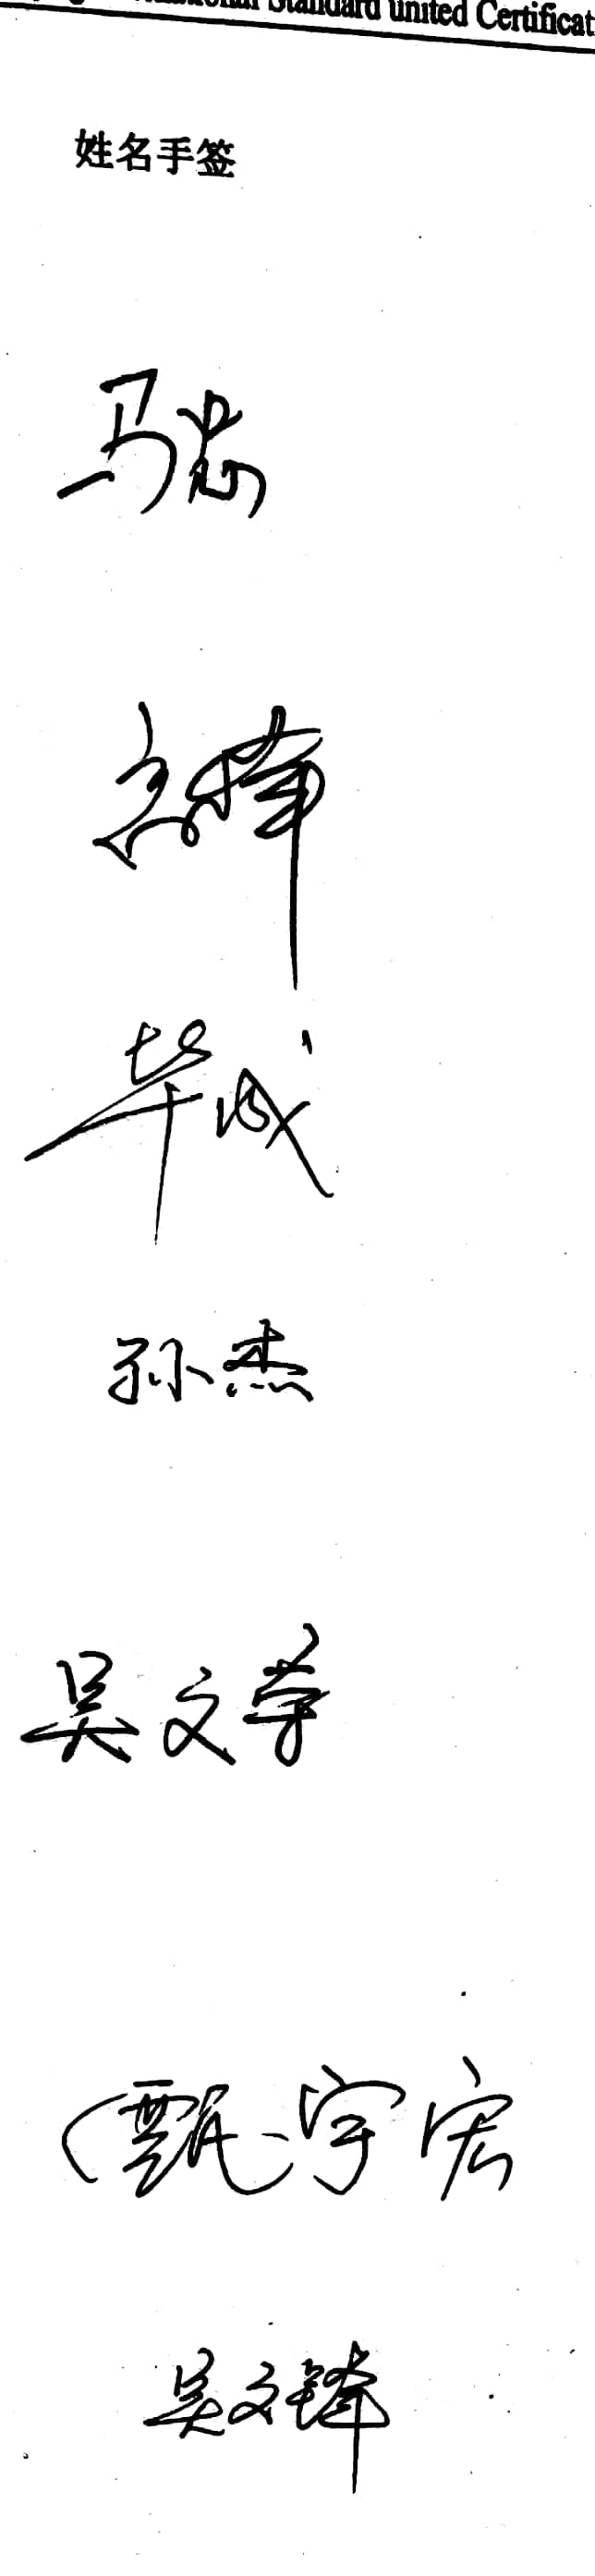 Standard united Certificat
姓名手签
马忠
毕成
孙杰
吴文荣
甄宇宏
吴文锋